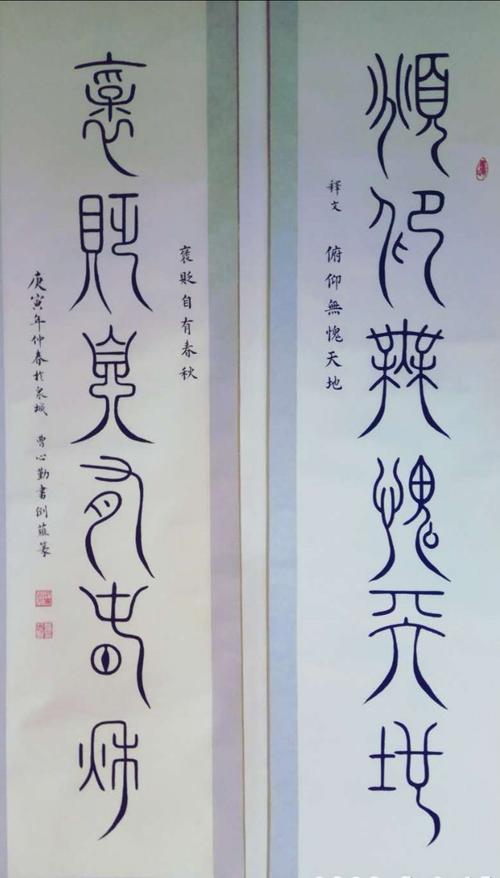 頫仰無愧天地
释文 俯仰無愧天地
褒貶自有春秋
褒貶自有春秋
庚寅年仲春於泉城 曹心勤書倒薤篆